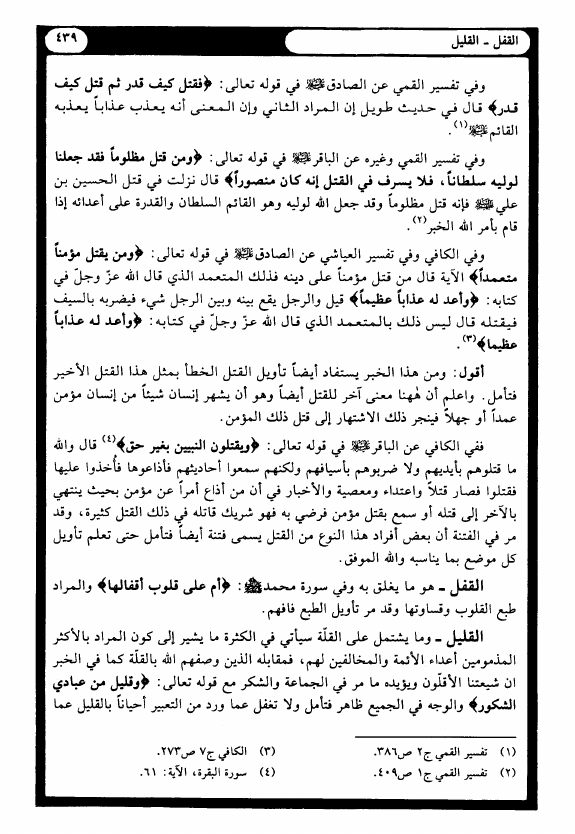 القفل - القليل
٤٣٩
وفي تفسير القمي عن الصادق عليه السلام في قوله تعالى: ﴿فقتل كيف قدر ثم قتل كيف
قدر﴾ قال في حديث طويل إن المراد الثاني وإن المعنى أنه يعذب عذاباً يعذبه
القائم عليه السلام(١).
وفي تفسير القمي وغيره عن الباقر عليه السلام في قوله تعالى: ﴿ومن قتل مظلوماً فقد جعلنا
لوليه سلطاناً، فلا يسرف في القتل إنه كان منصوراً﴾ قال نزلت في قتل الحسين بن
علي عليه السلام فإنه قتل مظلوماً وقد جعل الله لوليه وهو القائم السلطان والقدرة على أعدائه إذا
قام بأمر الله الخبر(٢).
وفي الكافي وفي تفسير العياشي عن الصادق عليه السلام في قوله تعالى: ﴿ومن يقتل مؤمناً
متعمداً﴾ الآية قال من قتل مؤمناً على دينه فذلك المتعمد الذي قال الله عزّ وجلّ في
كتابه: ﴿وأعد له عذاباً عظيماً﴾ قيل والرجل يقع بينه وبين الرجل شيء فيضربه بالسيف
فيقتله قال ليس ذلك بالمتعمد الذي قال الله عزّ وجلّ في كتابه: ﴿وأعد له عذاباً
عظيما﴾(٣).
أقول: ومن هذا الخبر يستفاد أيضاً تأويل القتل الخطأ بمثل هذا القتل الأخير
فتأمل. واعلم أن هٰهنا معنى آخر للقتل أيضاً وهو أن يشهر إنسان شيئاً من إنسان مؤمن
عمداً أو جهلاً فينجر ذلك الاشتهار إلى قتل ذلك المؤمن.
ففي الكافي عن الباقر عليه السلام في قوله تعالى: ﴿ويقتلون النبيين بغير حق﴾(٤) قال والله
ما قتلوهم بأيديهم ولا ضربوهم بأسيافهم ولكنهم سمعوا أحاديثهم فأذاعوها فأُخذوا عليها
فقتلوا فصار قتلاً واعتداء ومعصية والأخبار في أن من أذاع أمراً عن مؤمن بحيث ينتهي
بالآخر إلى قتله أو سمع بقتل مؤمن فرضي به فهو شريك قاتله في ذلك القتل كثيرة، وقد
مر في الفتنة أن بعض أفراد هذا النوع من القتل يسمى فتنة أيضاً فتأمل حتى تعلم تأويل
كل موضع بما يناسبه والله الموفق.
القفل ـ هو ما يغلق به وفي سورة محمد ﷺ: ﴿أم على قلوب أقفالها﴾ والمراد
طبع القلوب وقساوتها وقد مر تأويل الطبع فافهم.
القليل ـ وما يشتمل على القلّة سيأتي في الكثرة ما يشير إلى كون المراد بالأكثر
المذمومين أعداء الأئمة والمخالفين لهم، فمقابله الذين وصفهم الله بالقلّة كما في الخبر
ان شيعتنا الأقلّون ويؤيده ما مر في الجماعة والشكر مع قوله تعالى: ﴿وقليل من عبادي
الشكور﴾ والوجه في الجميع ظاهر فتأمل ولا تغفل عما ورد من التعبير أحياناً بالقليل عما
(١) تفسير القمي ج٢ ص٣٨٦.
(٢) تفسير القمي ج١ ص٤٠٩.
(٣) الكافي ج٧ ص٢٧٣.
(٤) سورة البقرة، الآية: ٦١.